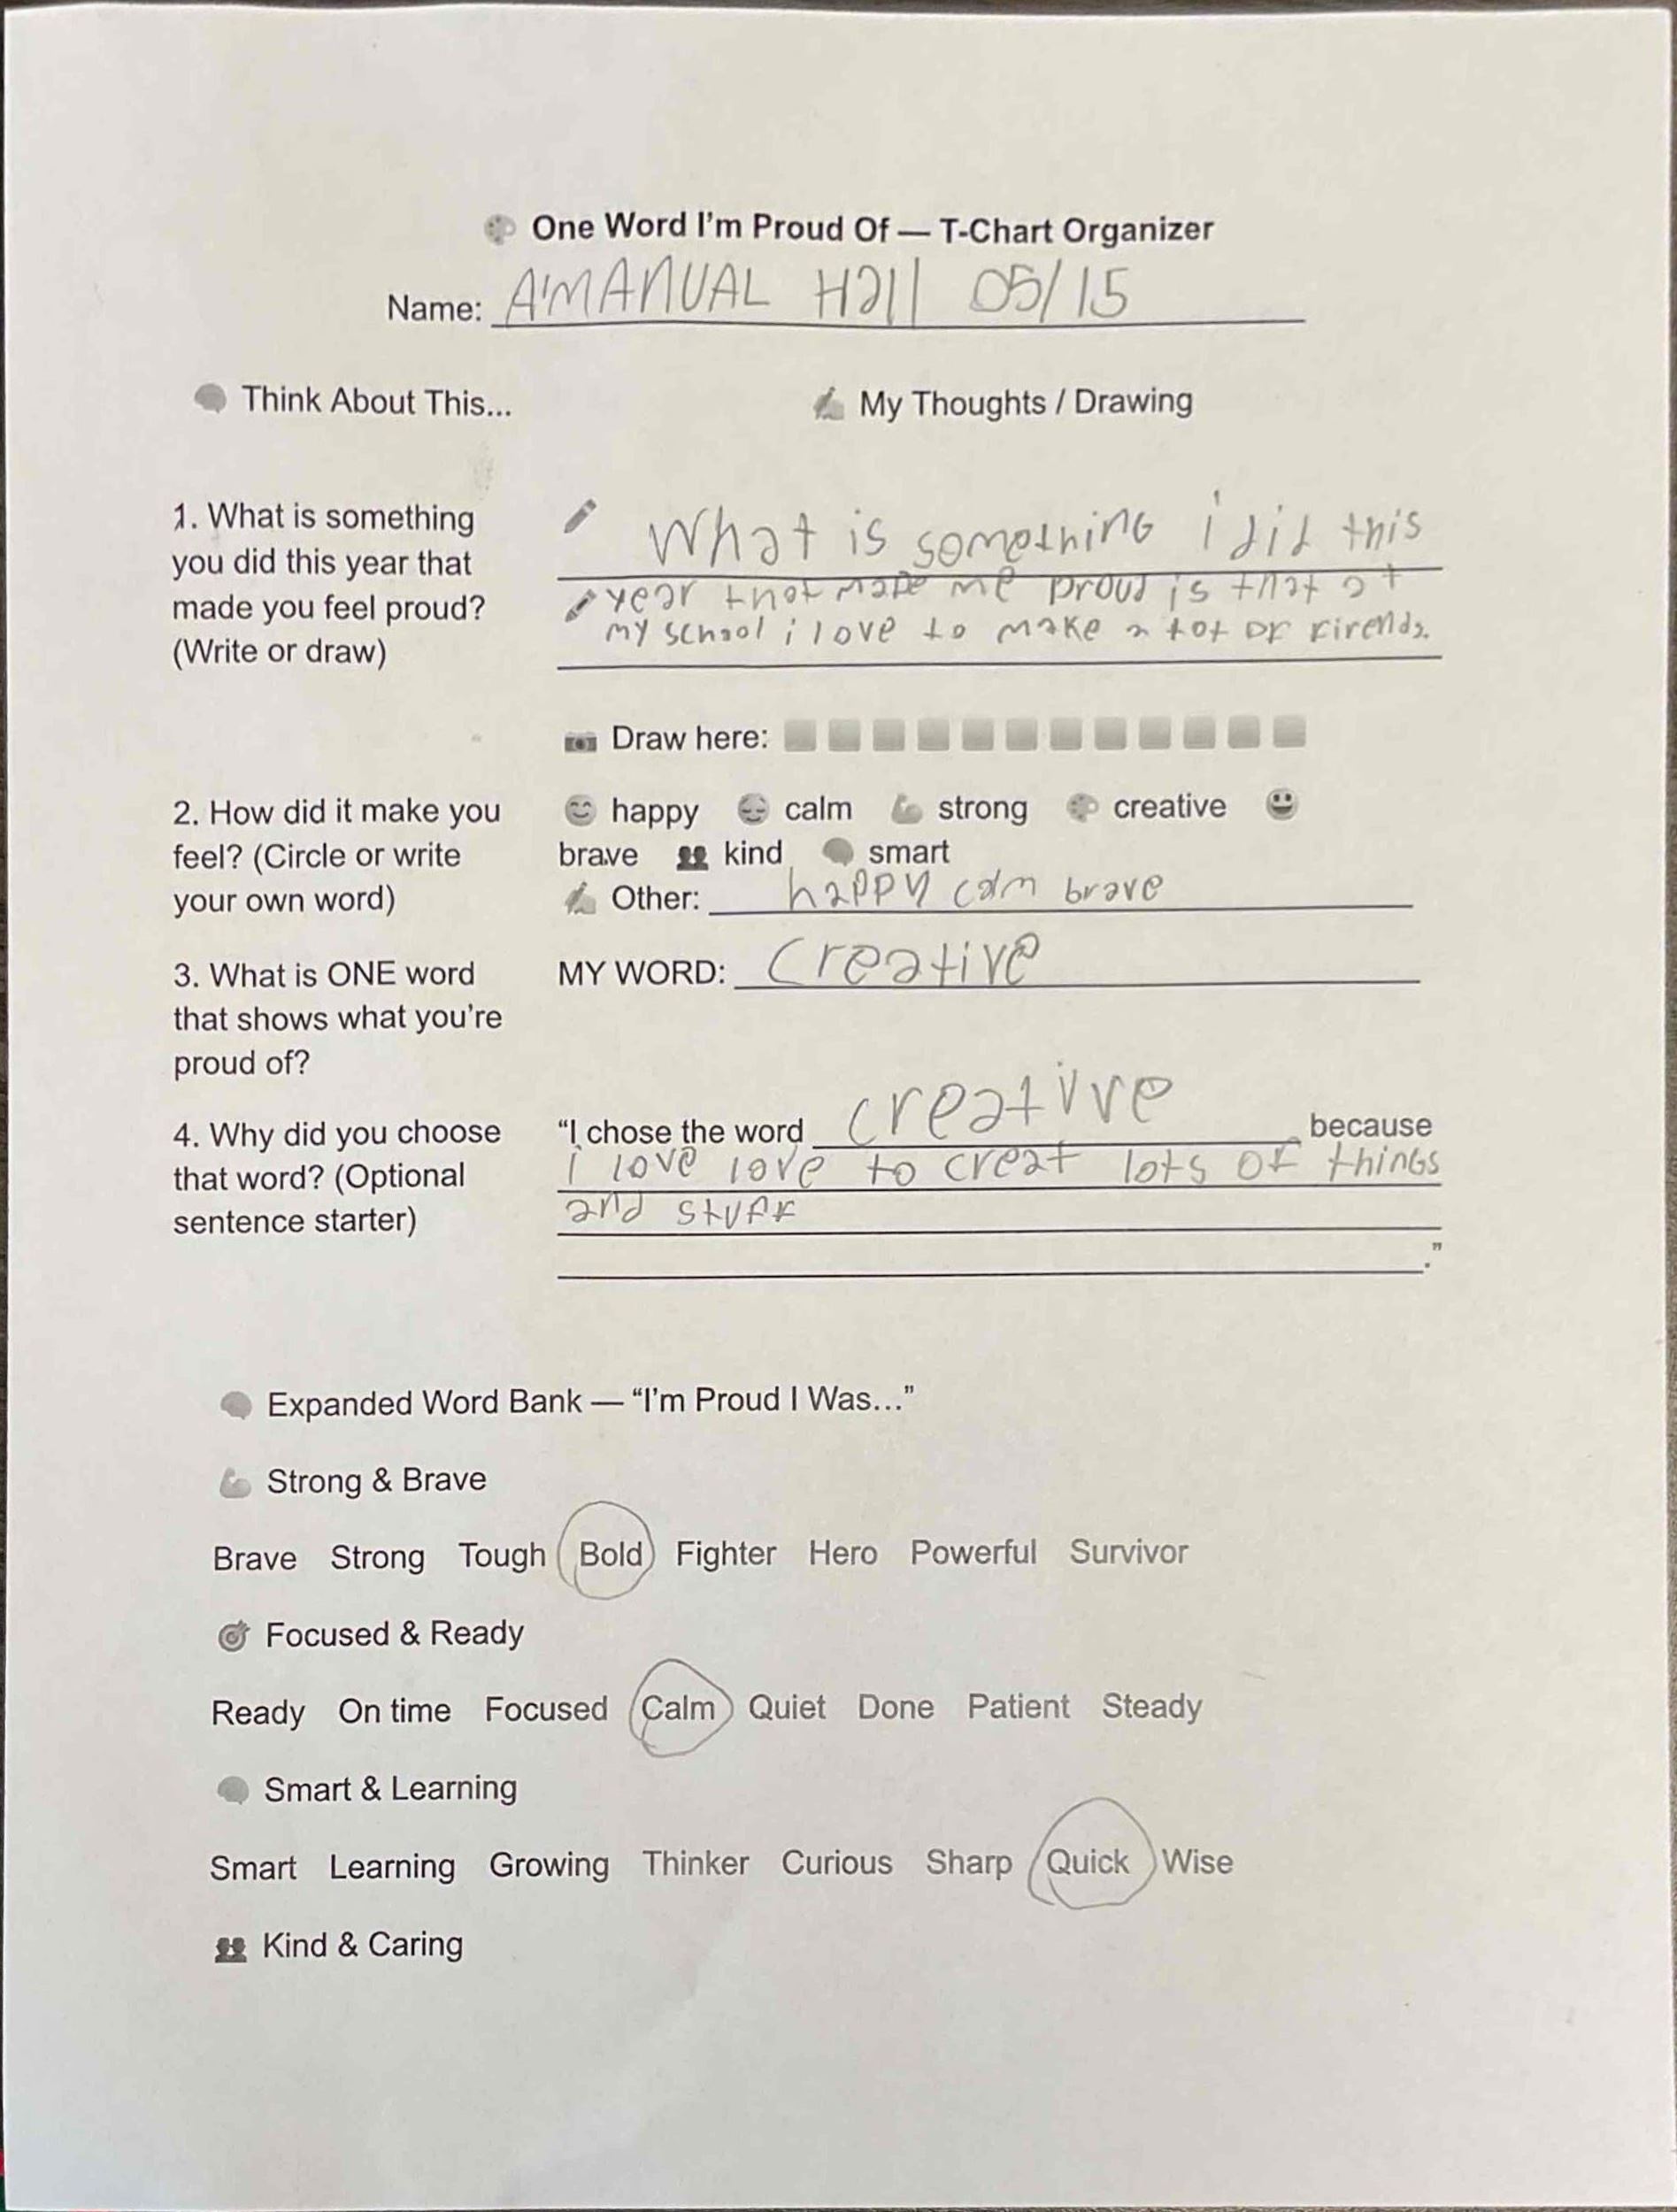 One Word I'm Proud Of — T-Chart Organizer
Name: A'MANUAL Hall 05/15
Think About This...
My Thoughts / Drawing
1. What is something
you did this year that
made you feel proud?
(Write or draw)
What is something i did this
year that made me proud is that at
my school i love to make a tot of firends.
Draw here:
2. How did it make you
feel? (Circle or write
your own word)
happy calm strong creative
brave kind smart
Other: happy calm brave
3. What is ONE word
that shows what you're
proud of?
MY WORD: creative
4. Why did you choose
that word? (Optional
sentence starter)
"I chose the word creative because
i love love to creat lots of things
and stuff
."
Expanded Word Bank — "I'm Proud I Was..."
Strong & Brave
Brave Strong Tough Bold Fighter Hero Powerful Survivor
Focused & Ready
Ready On time Focused Calm Quiet Done Patient Steady
Smart & Learning
Smart Learning Growing Thinker Curious Sharp Quick Wise
Kind & Caring